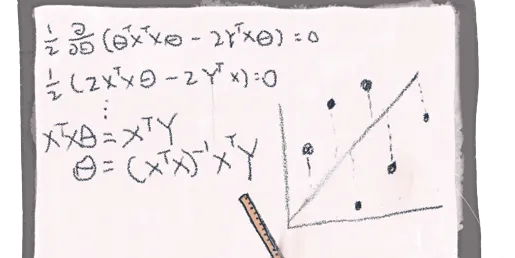 ½ ∂/∂θ (θᵀXᵀXθ − 2YᵀXθ) = 0
½ (2XᵀXθ − 2Yᵀx) = 0
⋮
XᵀXθ = XᵀY
θ = (XᵀX)⁻¹XᵀY